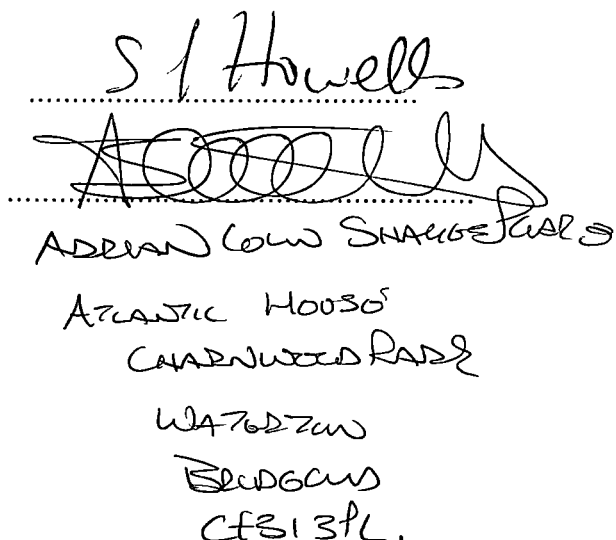 S J Howells
ADRIAN COLIN SHAKESPEARE
ATLANTIC HOUSE
CHARNWOOD PARK
WATERTON
BRIDGEND
CF31 3PL.